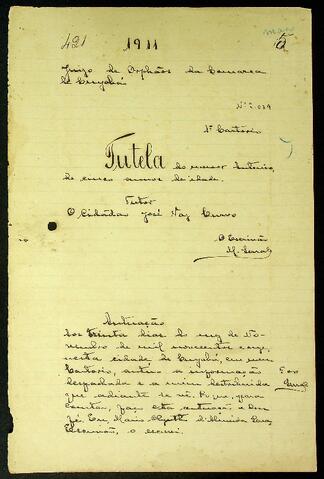 421
1911
Juizo de Orphãos da Comarca
de Cuyabá
1º Cartorio
Tutela do menor Antonio,
de cinco annos de idade.
Tutor
O Cidadão José Vaz Curvo
O Escrivão
Autuação
Aos trinta dias do mez de No-
vembro de mil novecentos e onze,
nesta cidade de Cuyabá, em meu
Cartorio, autuo a informação
despachada e a mim
que adiante se vê. Do que, para
constar, faço esta autuação e dou
fé. Eu,
Escrivão, o escrevi.